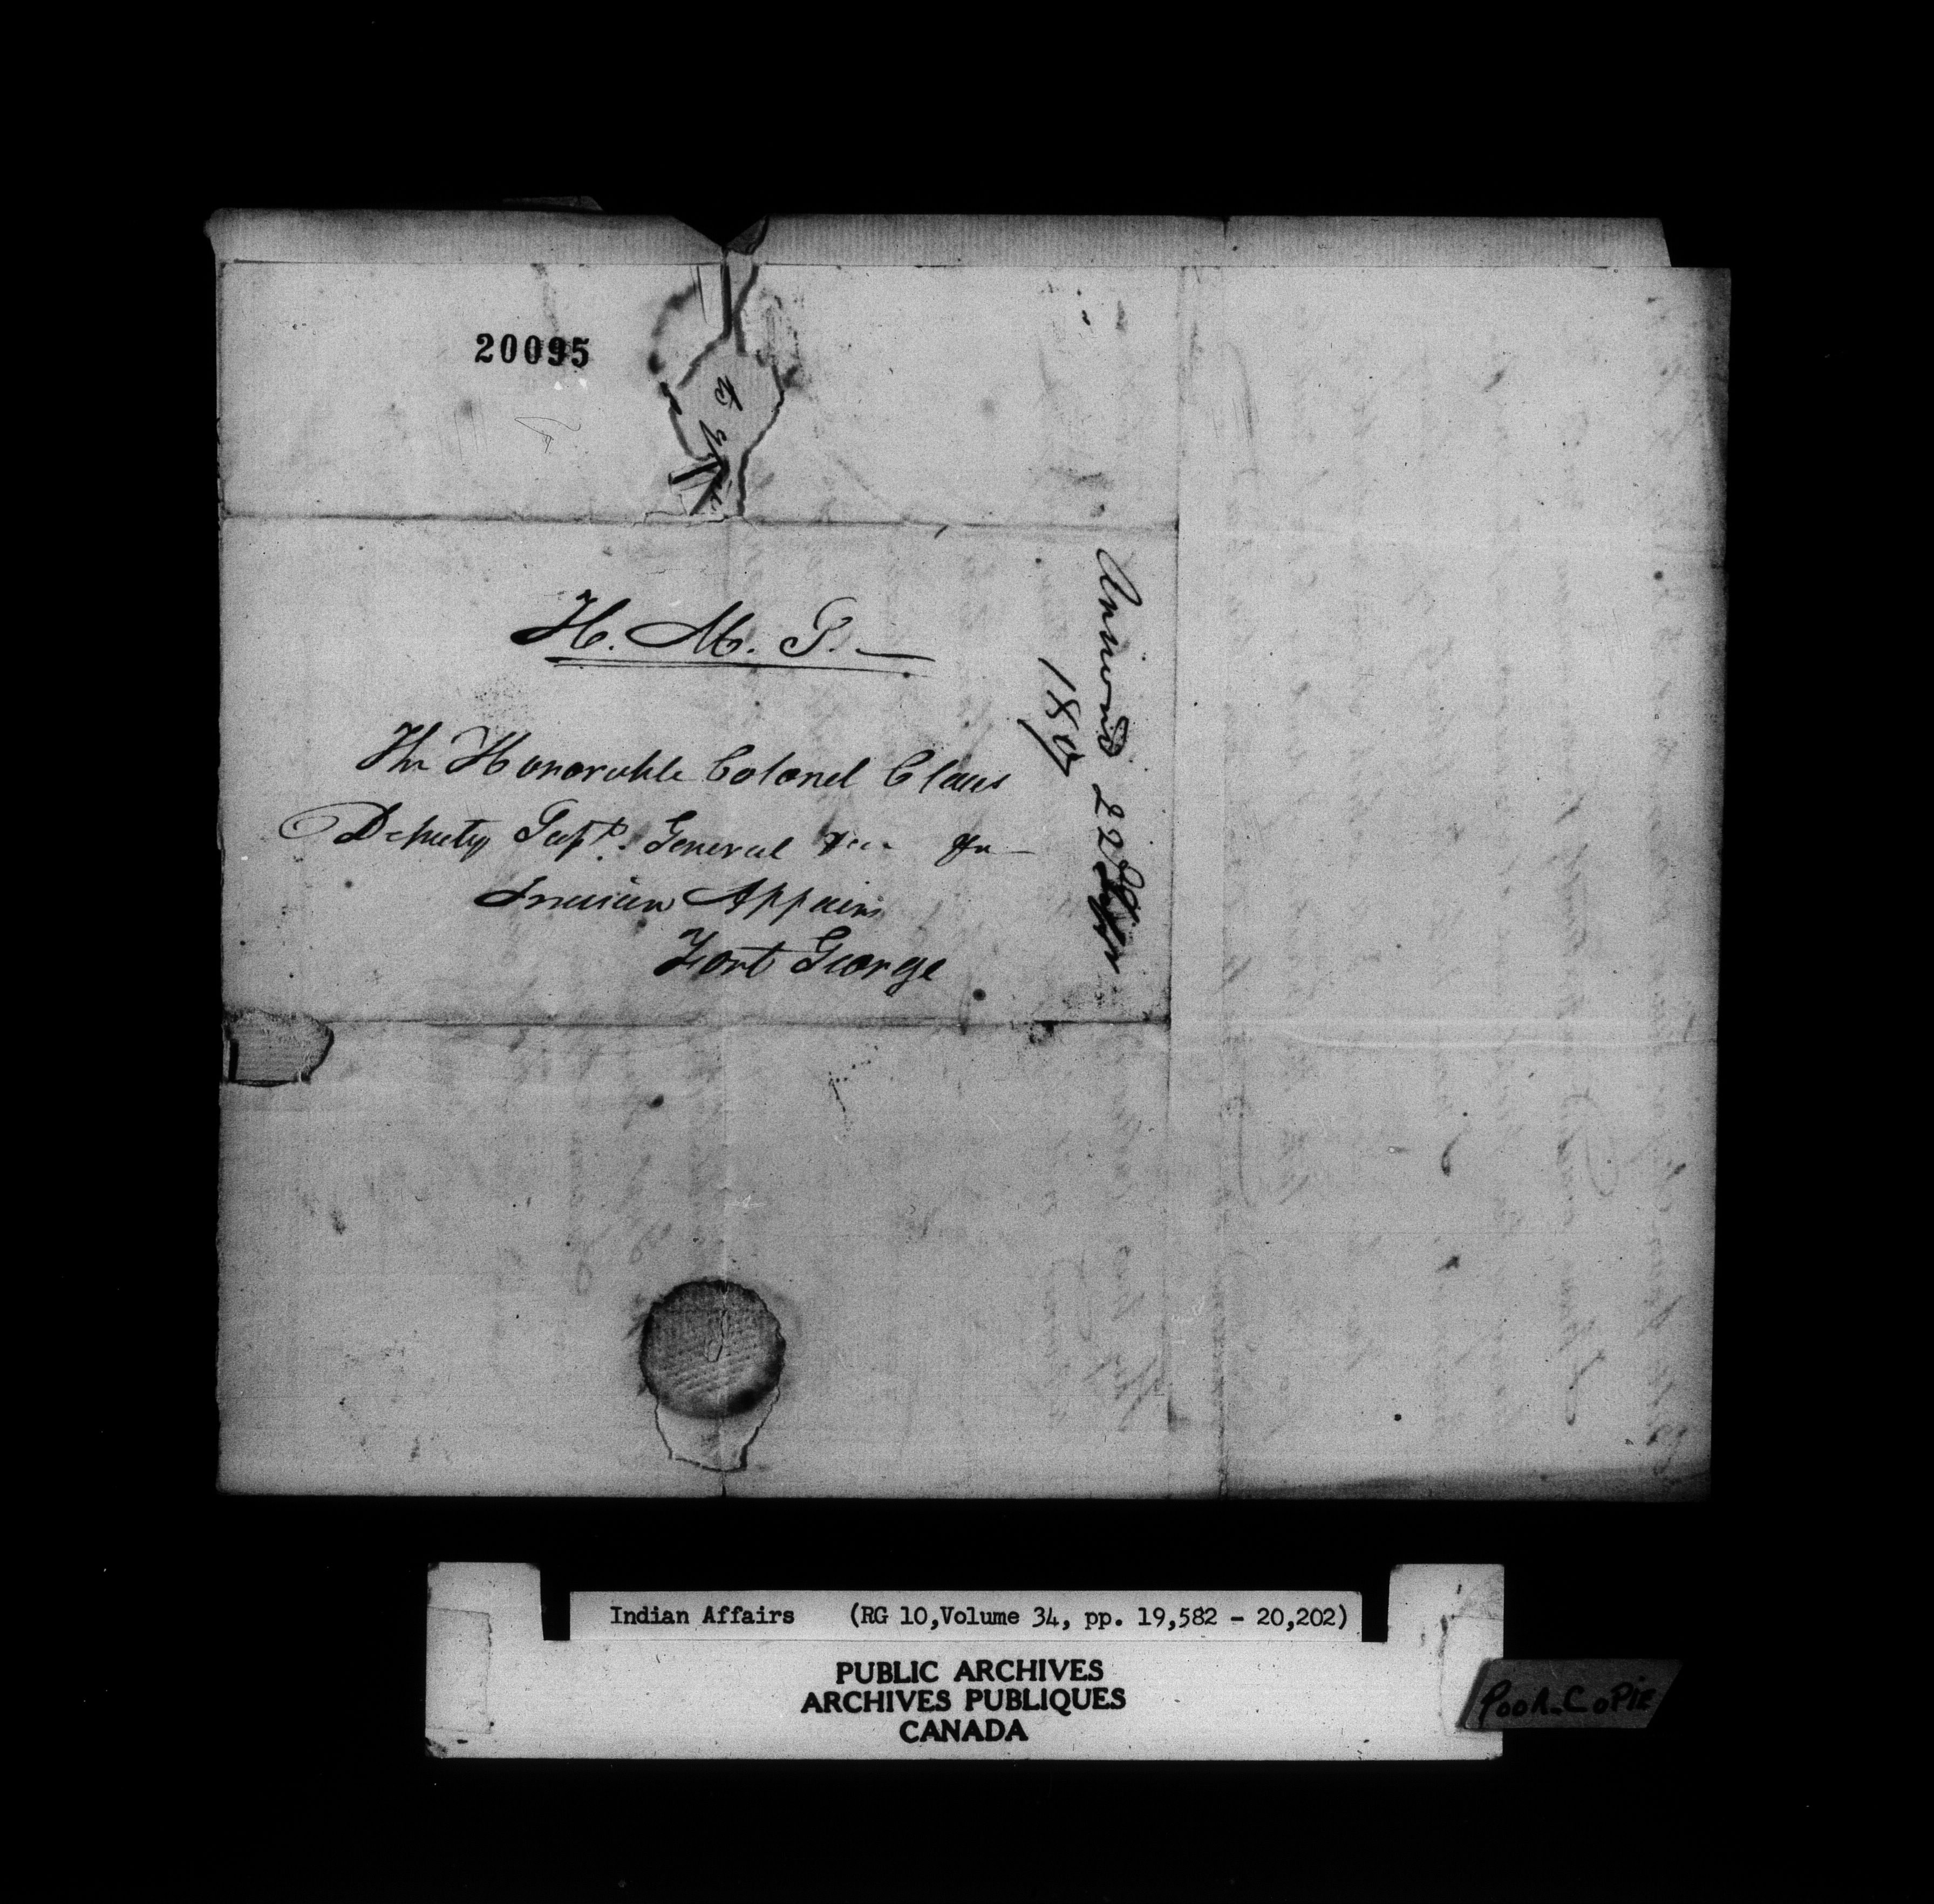 20095
H. M. S.
The Honorable Colonel Claus
Deputy Supt. General &c. &c
Indian Affairs
Fort George
Answered 22
Indian Affairs (RG 10, Volume 34, pp. 19,582 - 20,202)
PUBLIC ARCHIVES
ARCHIVES PUBLIQUES
CANADA
POOR COPIE